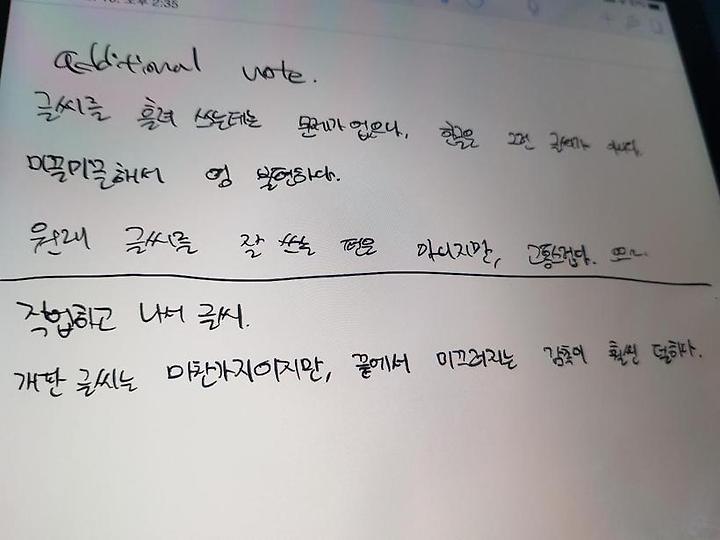 오후 2:35
additional note.
글씨를 흘려 쓰는데는 문제가 없으나, 한글은 그런 글씨가 아니다.
미끌미끌해서 영 불편하다.
원래 글씨를 잘 쓰는 편은 아니지만, 고통스럽다.
작업하고 나서 글씨.
개판 글씨는 마찬가지이지만, 끝에서 미끄러지는 감촉이 훨씬 덜하다.